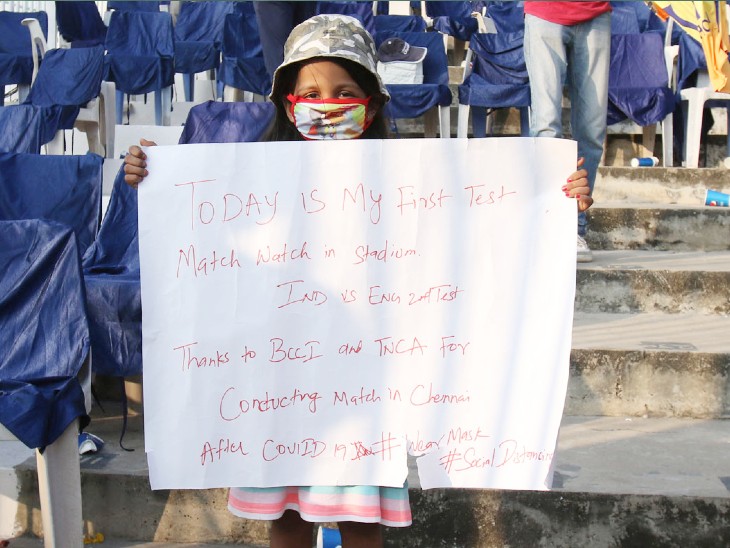 TODAY iS My First Test
Match Watch in Stadium.
IND vs ENG 2nd Test
Thanks to BCCI and TNCA For
Conducting Match in Chennai
After COVIID 19 # Wear Mask
#Social Distancing